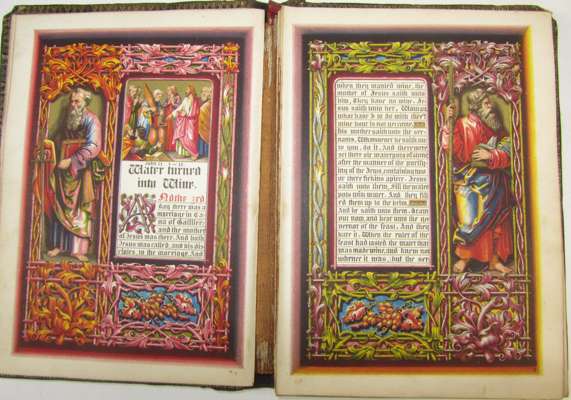 John II. 1-11.
Water turned
into Wine.
And the 3rd
day there was a
marriage in Ca-
na of Galilee:
and the mother
of Jesus was there. And both
Jesus was called, and his dis-
ciples, to the marriage. And
when they wanted wine, the
mother of Jesus saith unto
him, They have no wine. Je-
sus saith unto her, Woman,
what have I to do with thee?
mine hour is not yet come.
His mother saith unto the ser-
vants, Whatsoever he saith un-
to you, do it. And there were
set there six waterpots of stone,
after the manner of the purify-
ing of the Jews, containing two
or three firkins apiece. Jesus
saith unto them, Fill the water
pots with water. And they fill-
ed them up to the brim.
And he saith unto them, Draw
out now, and bear unto the go-
vernor of the feast. And they
bare it. When the ruler of the
feast had tasted the water that
was made wine, and knew not
whence it was, but the ser-